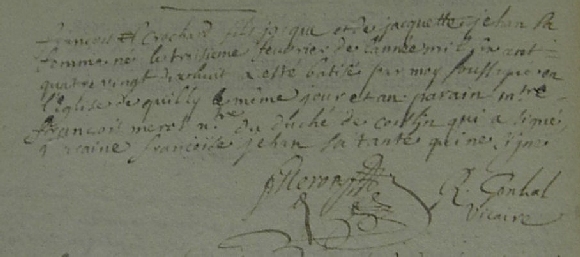 françois Crochard fils jacque et de jacquette jehan sa
femme né le troisieme feuvrier de l'année mil six cent
quatre vingt dixhuit a esté batisé par moy soussigné en
l'église de quilly le même jour et an parain mtre
françois meros nre du duché de coislin qui a signé
maraine francoise jehan sa tante qui ne signe
Conhal
vicaire